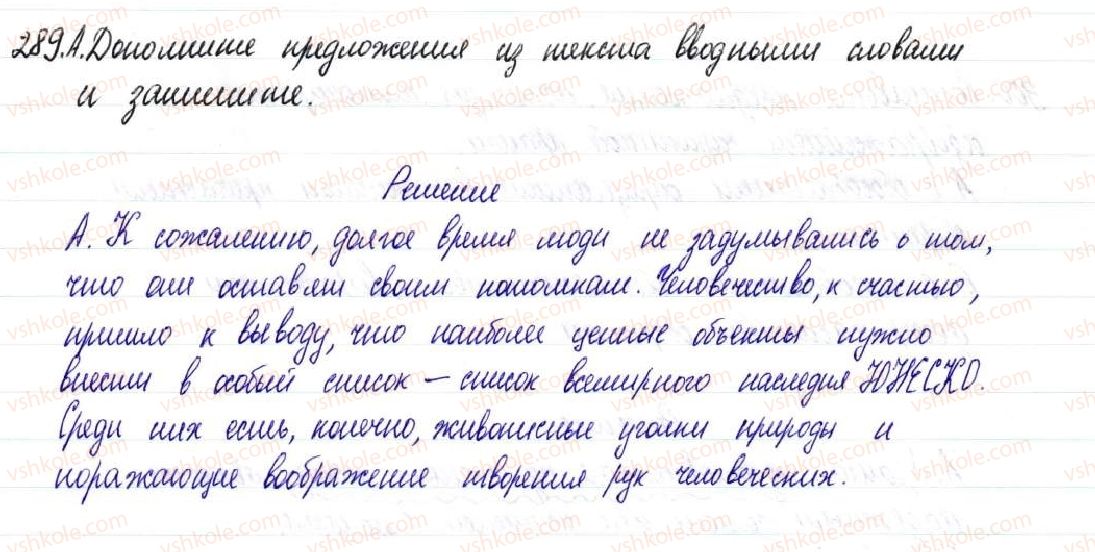 289.А. Дополните предложения из текста вводными словами
и запишите.
Решение
А. К сожалению, долгое время люди не задумывались о том,
что они оставят своим потомкам. Человечество, к счастью,
пришло к выводу, что наиболее ценные объекты нужно
внести в особый список – список всемирного наследия ЮНЕСКО.
Среди них есть, конечно, живописные уголки природы и
поражающие воображение творения рук человеческих.